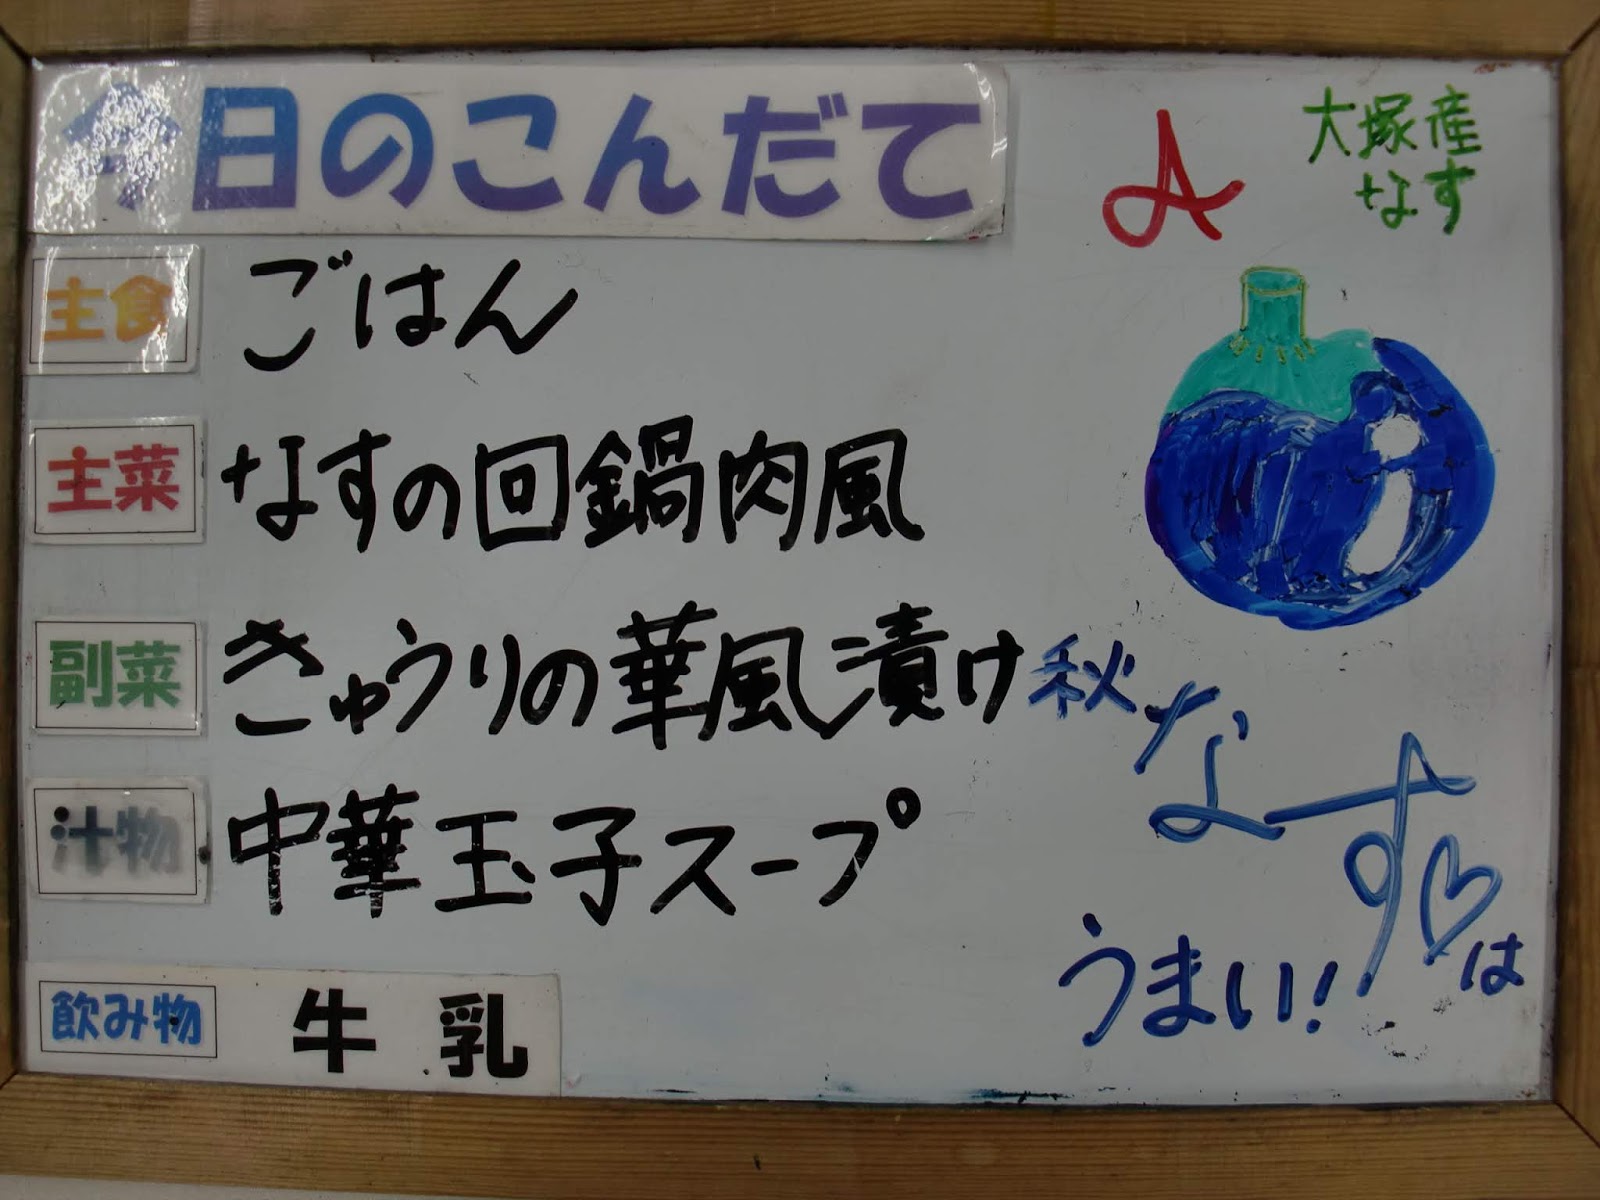 今日のこんだて
A
大塚産
なす
主食 ごはん
主菜 なすの回鍋肉風
副菜 きゅうりの華風漬け
汁物 中華玉子スープ
飲み物 牛乳
秋なす♡は
うまい!